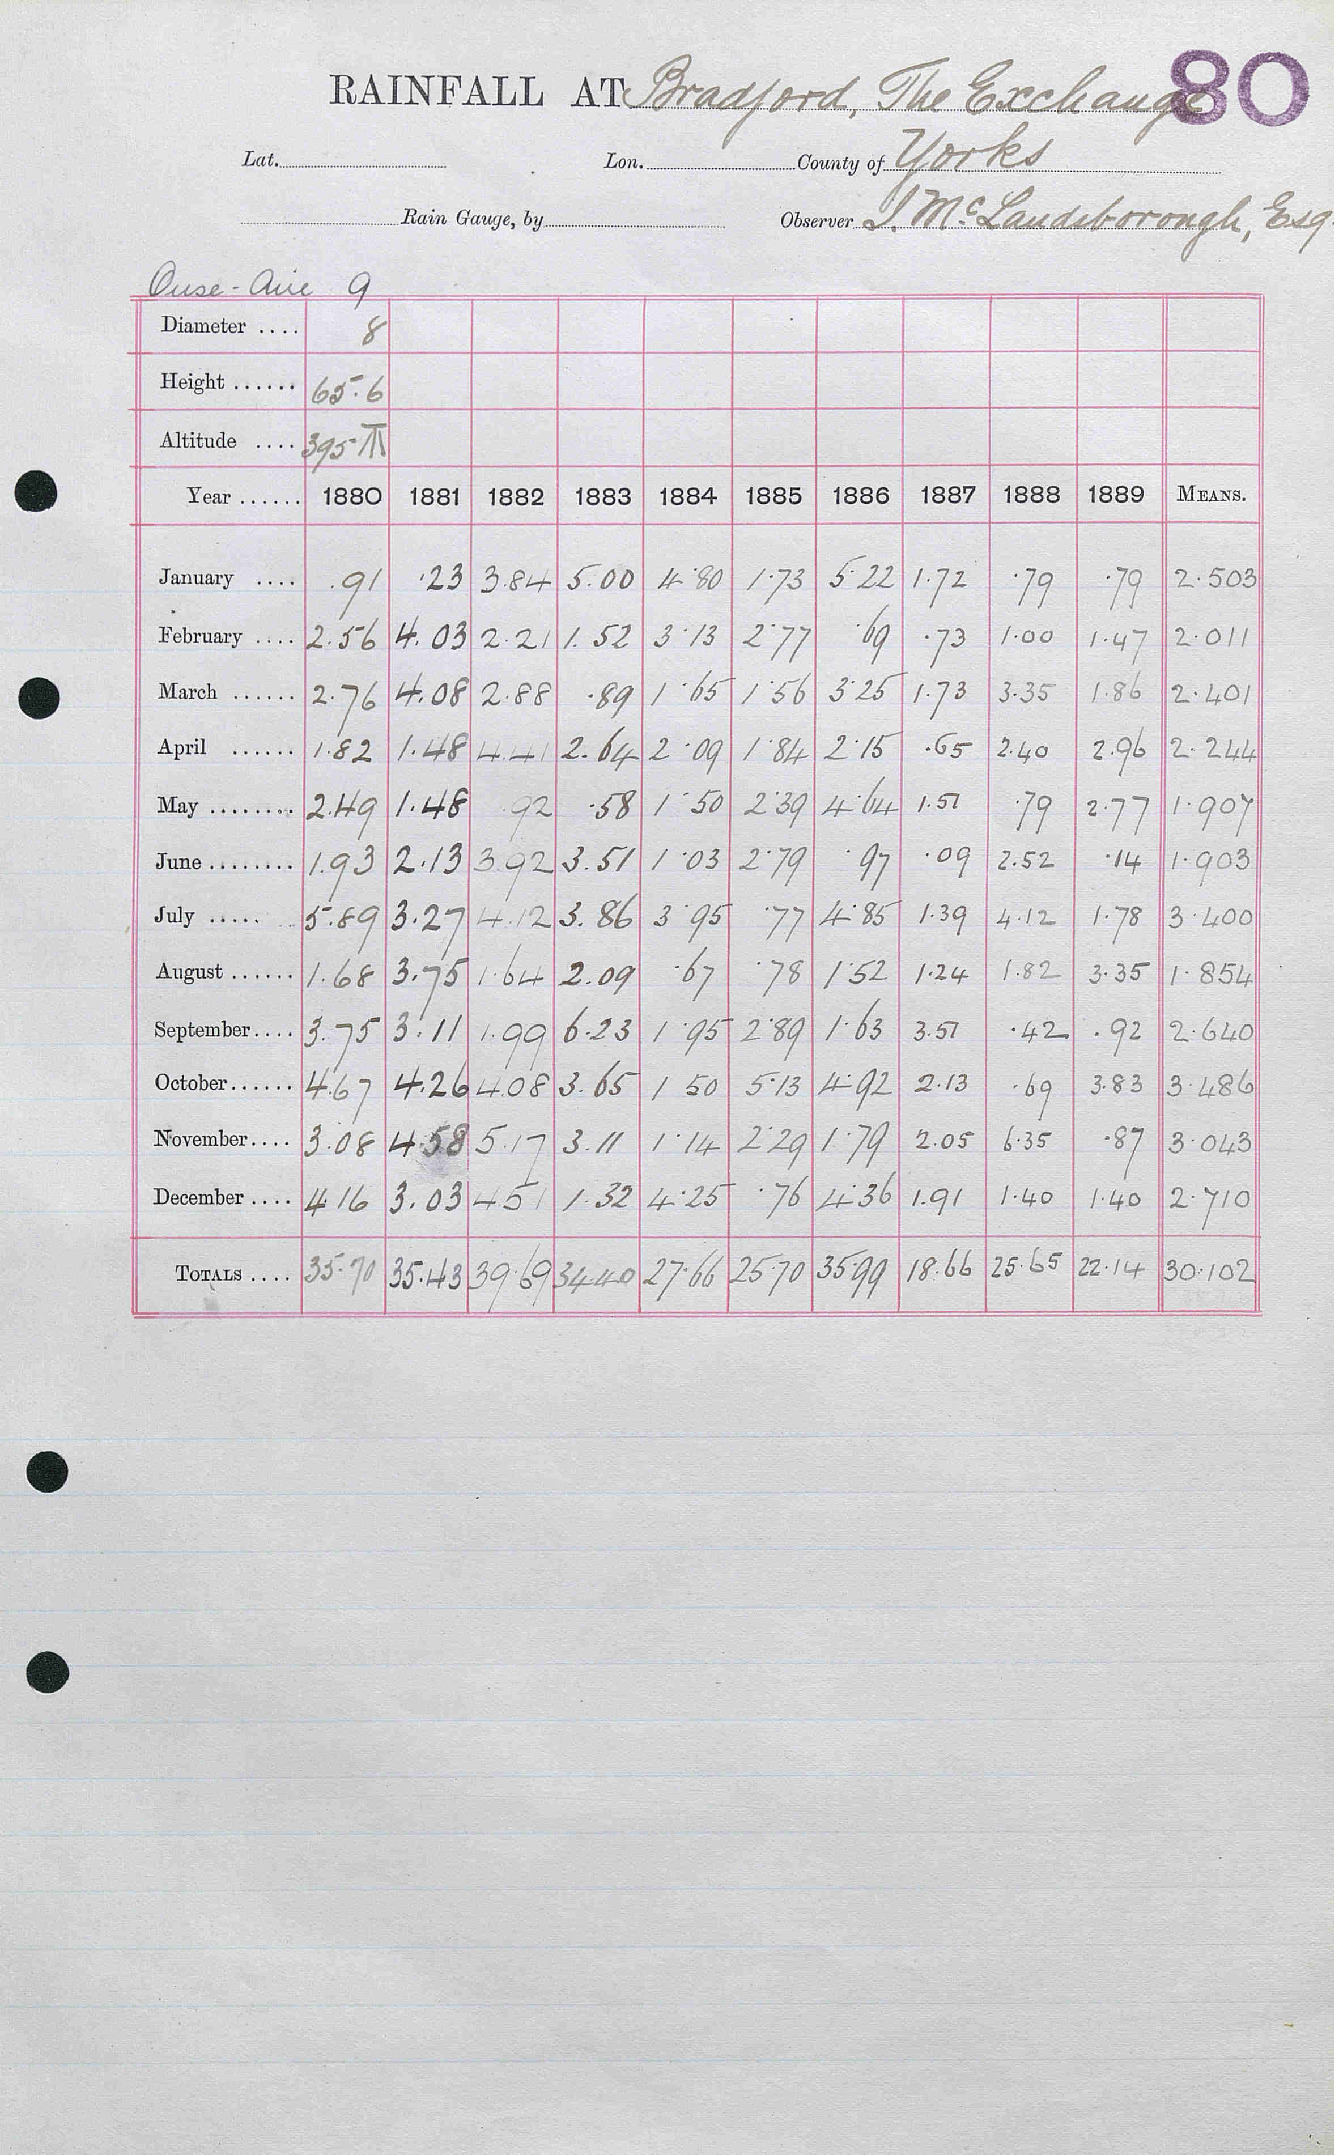 RAINFALL AT Bradford, The Exchange 80
Lat. Lon. County of Yorks
Rain Gauge, by Observer J. McLandsborough, Esq.
Ouse-Aire 9
Diameter .... 8
Height ...... 65.6
Altitude .... 395 T
Year ...... 1880 1881 1882 1883 1884 1885 1886 1887 1888 1889 MEANS.
January .... .91 .23 3.84 5.00 4.80 1.73 5.22 1.72 .79 .79 2.503
February .... 2.56 4.03 2.21 1.52 3.13 2.77 .69 .73 1.00 1.47 2.011
March ...... 2.76 4.08 2.88 .89 1.65 1.56 3.25 1.73 3.35 1.86 2.401
April ...... 1.82 1.48 4.41 2.64 2.09 1.84 2.15 .65 2.40 2.96 2.244
May ........ 2.49 1.48 .92 .58 1.50 2.39 4.64 1.51 .79 2.77 1.907
June ........ 1.93 2.13 3.92 3.51 1.03 2.79 .97 .09 2.52 .14 1.903
July ..... 5.89 3.27 4.12 3.86 3.95 .77 4.85 1.39 4.12 1.78 3.400
August ...... 1.68 3.75 1.64 2.09 .67 .78 1.52 1.24 1.82 3.35 1.854
September .... 3.75 3.11 1.99 6.23 1.95 2.89 1.63 3.51 .42 .92 2.640
October ...... 4.67 4.26 4.08 3.65 1.50 5.13 4.92 2.13 .69 3.83 3.486
November .... 3.08 4.58 5.17 3.11 1.14 2.29 1.79 2.05 6.35 .87 3.043
December .... 4.16 3.03 4.51 1.32 4.25 .76 4.36 1.91 1.40 1.40 2.710
TOTALS .... 35.70 35.43 39.69 34.40 27.66 25.70 35.99 18.66 25.65 22.14 30.102